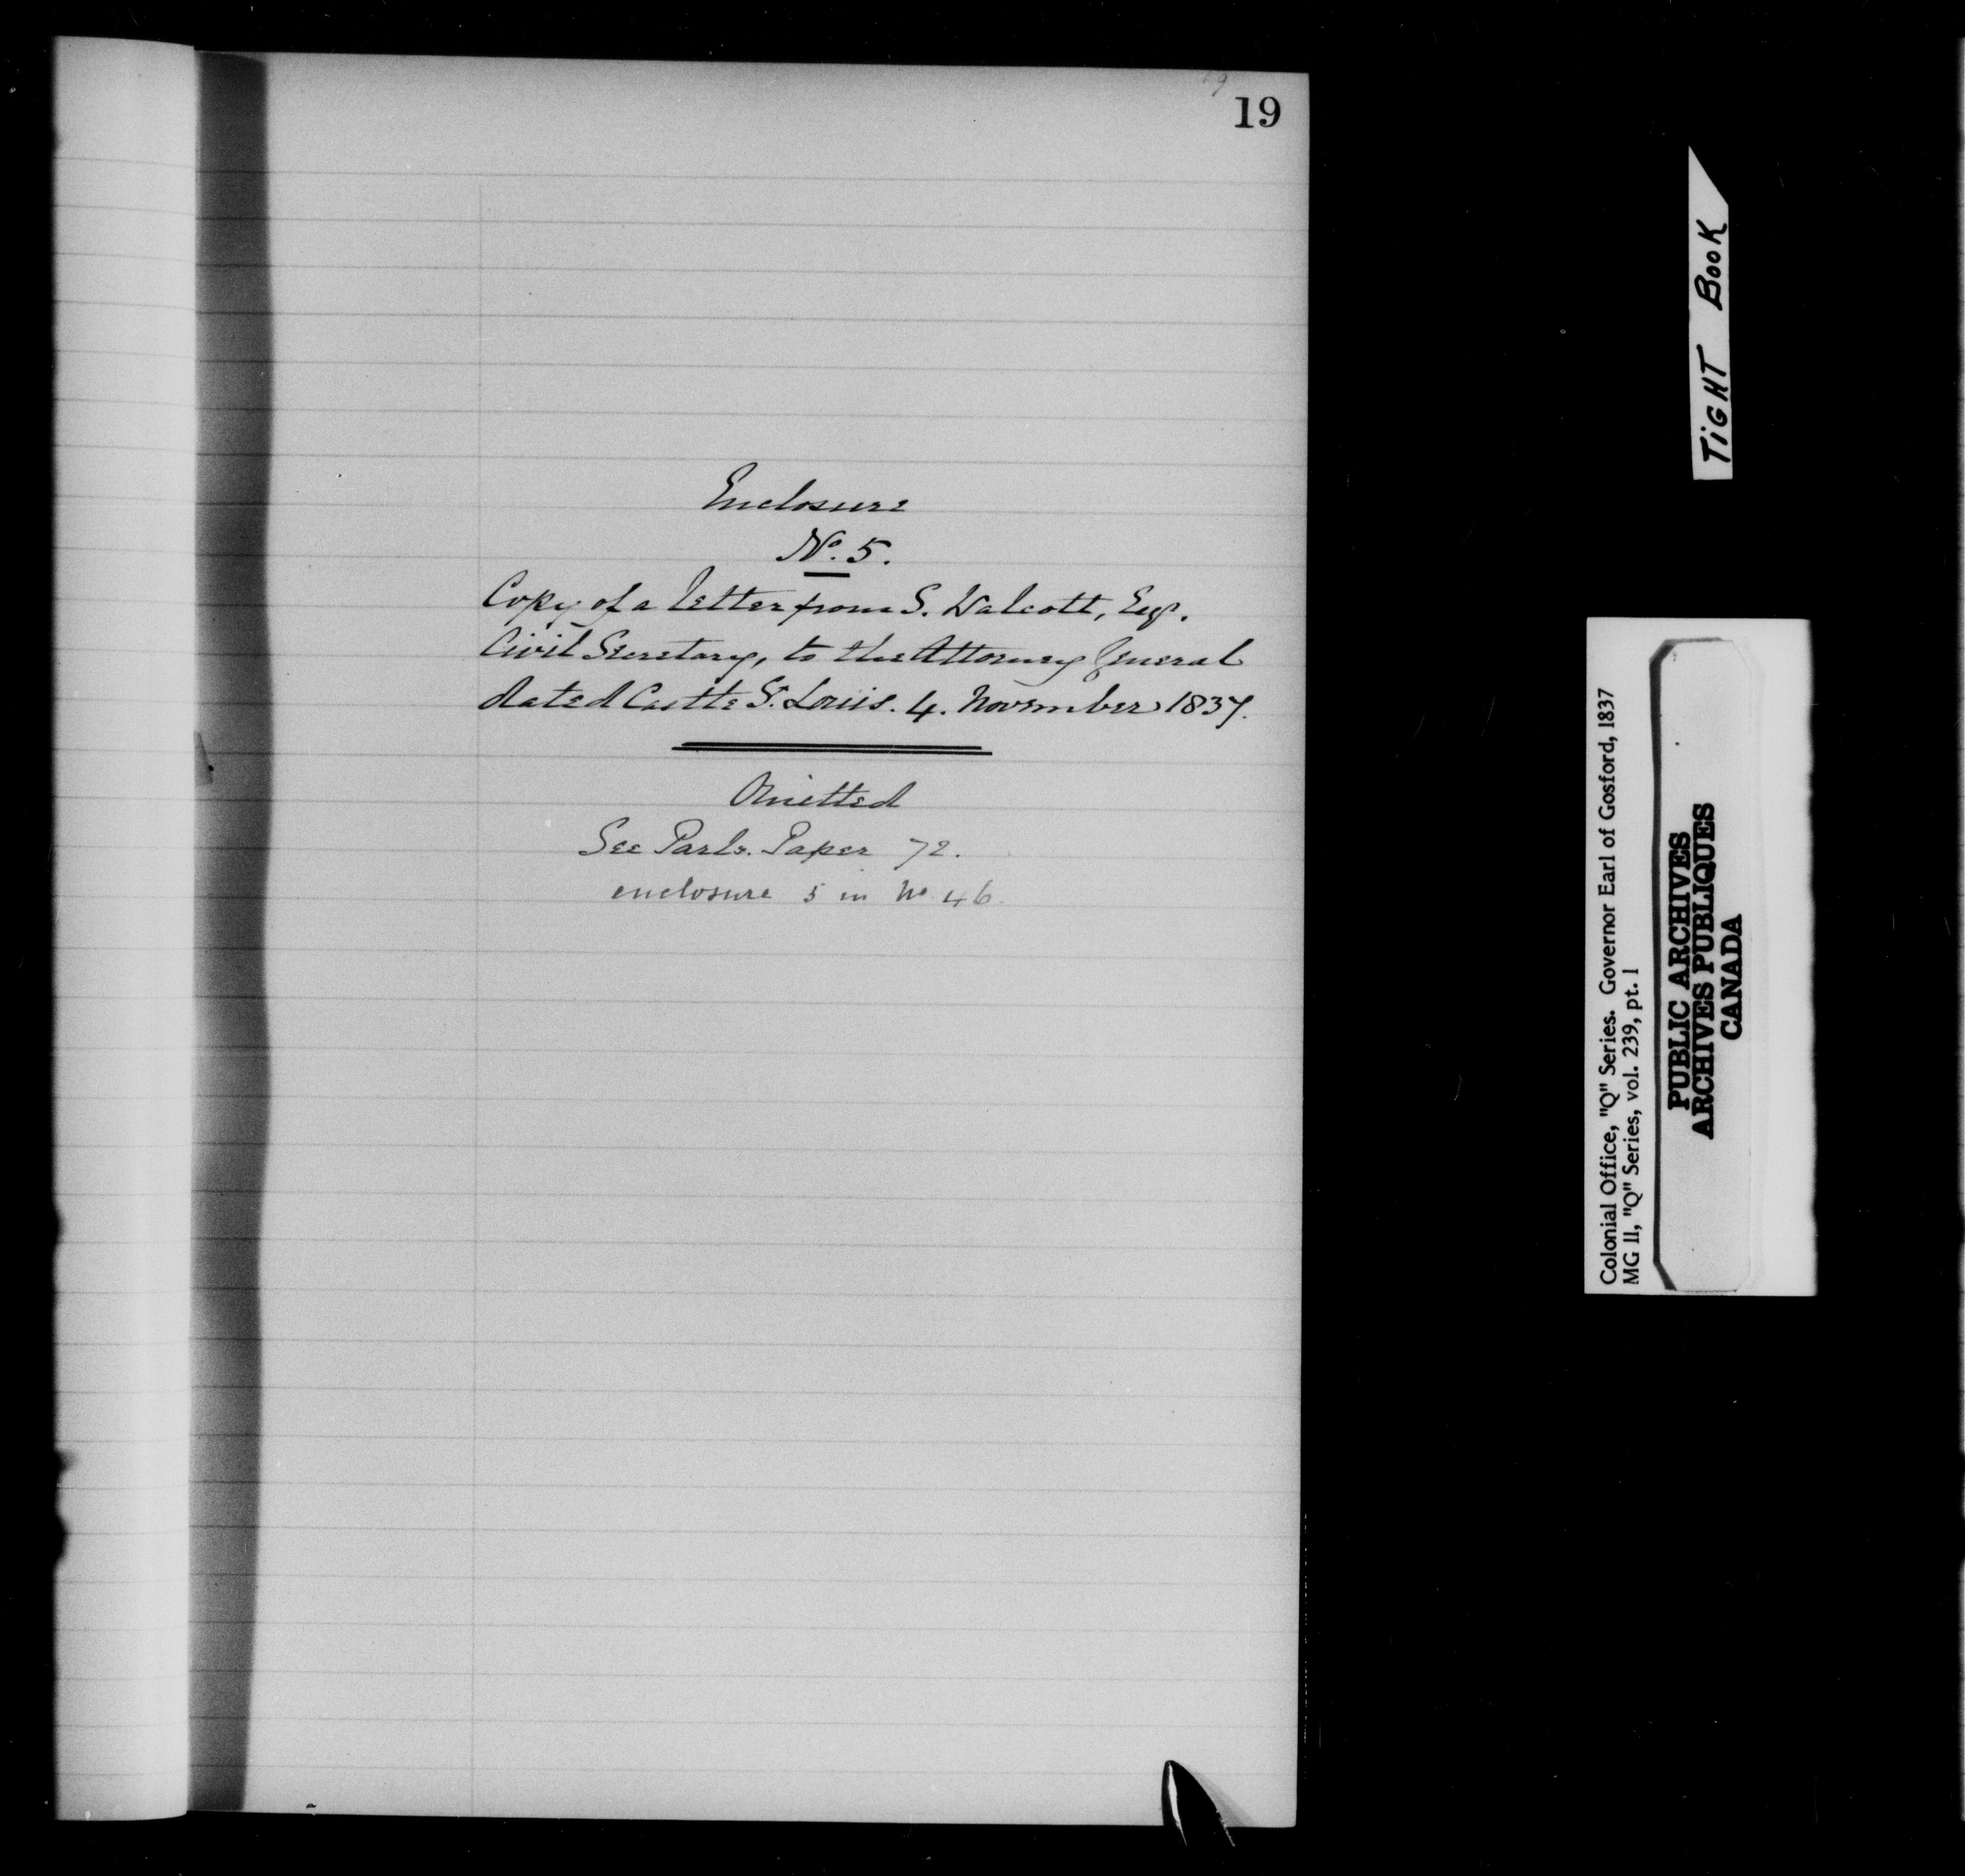 19
Enclosure
No. 5.
Copy of a letter from S. Walcott, Esqr.
Civil Secretary, to the Attorney General
dated Castle St. Louis. 4. November 1837.
Omitted
See Parly. Paper 72.
enclosure 5 in No 46.
TIGHT BOOK
Colonial Office, "Q" Series. Governor Earl of Gosford, 1837
MG 11, "Q" Series, vol. 239, pt. 1
PUBLIC ARCHIVES
ARCHIVES PUBLIQUES
CANADA